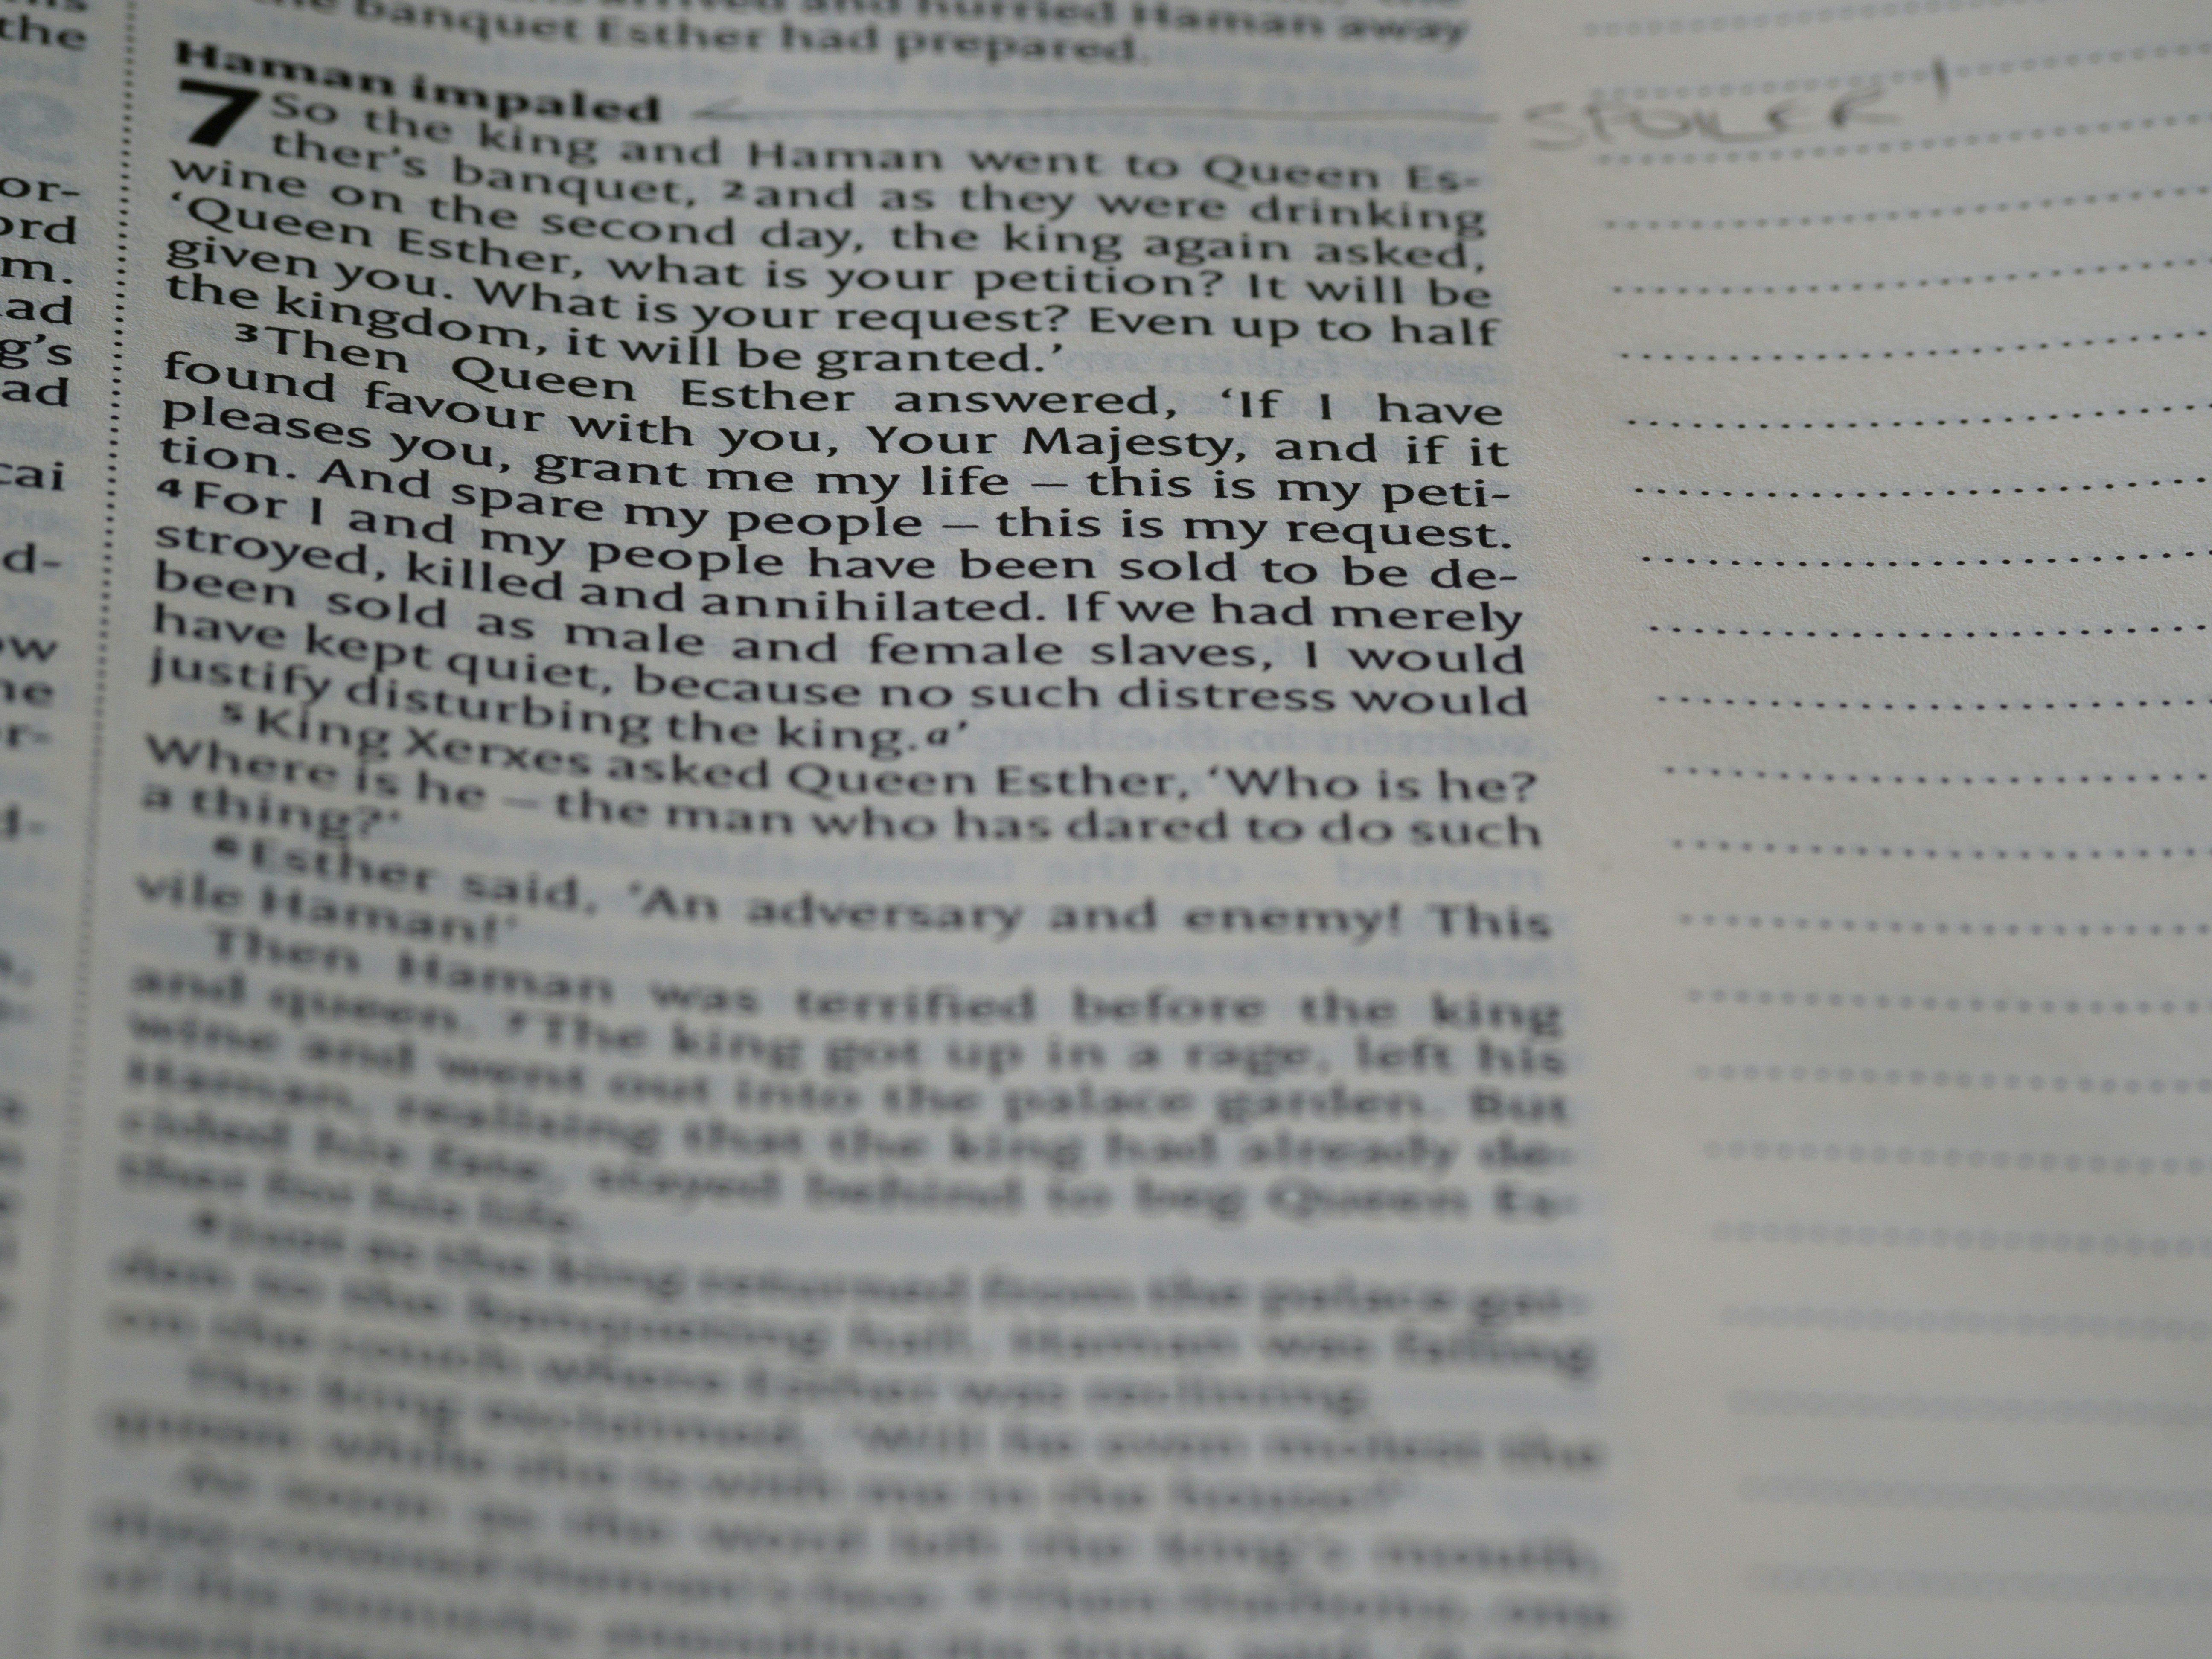 the
or-
ord
m.
ad
g's
ad
cai
d-
ow
ne
r-
d-
arrived and hurried Haman away
the banquet Esther had prepared.
Haman impaled
SPOILER!
7 So the king and Haman went to Queen Es-
ther's banquet, 2 and as they were drinking
wine on the second day, the king again asked,
‘Queen Esther, what is your petition? It will be
given you. What is your request? Even up to half
the kingdom, it will be granted.’
3 Then Queen Esther answered, ‘If I have
found favour with you, Your Majesty, and if it
pleases you, grant me my life – this is my peti-
tion. And spare my people – this is my request.
4 For I and my people have been sold to be de-
stroyed, killed and annihilated. If we had merely
been sold as male and female slaves, I would
have kept quiet, because no such distress would
justify disturbing the king.a’
5 King Xerxes asked Queen Esther, ‘Who is he?
Where is he – the man who has dared to do such
a thing?’
6 Esther said, ‘An adversary and enemy! This
vile Haman!’
Then Haman was terrified before the king
and queen. 7 The king got up in a rage, left his
wine and went out into the palace garden. But
Haman, realising that the king had already de-
cided his fate, stayed behind to beg Queen Es-
ther for his life.
8 Just as the king returned from the palace gar-
den to the banqueting hall, Haman was falling
on the couch where Esther was reclining.
The king exclaimed, ‘Will he even molest the
queen while she is with me in the house?’
As soon as the word left the king's mouth,